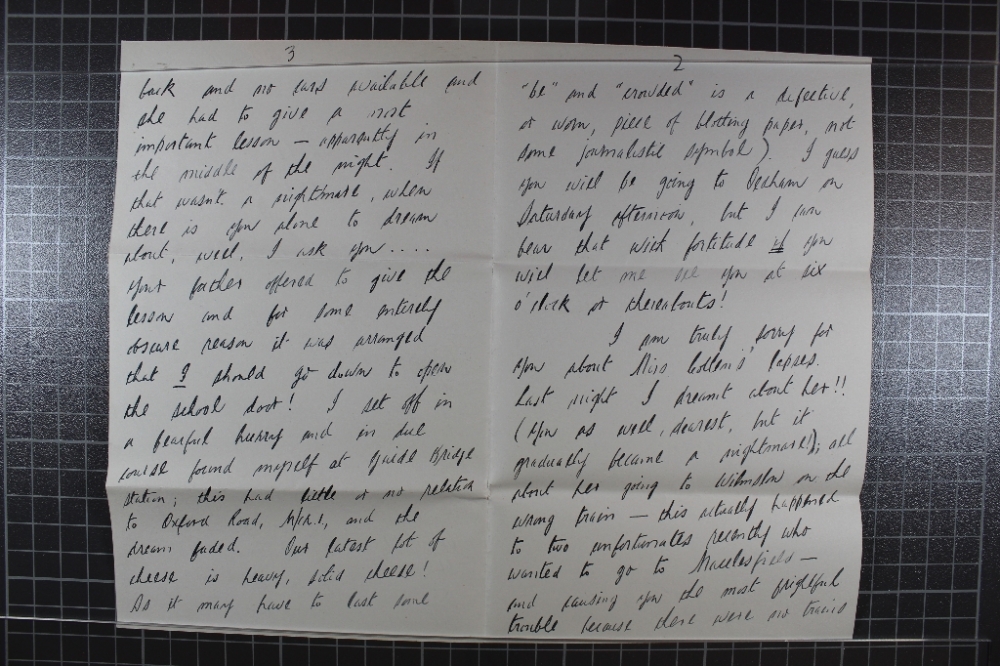 2
"be" and "crowded" is a defective,
or worn, piece of blotting paper, not
some journalistic symbol). I guess
you will be going to Dedham on
Saturday afternoon, but I can
bear that with fortitude if you
will let me see you at six
o'clock or thereabouts!
I am truly sorry for
you about Miss Collens' lapses.
Last night I dreamt about her!!
(you as well, dearest, but it
gradually became a nightmare!); all
about her going to Wilmslow on the
wrong train — this actually happened
to two unfortunates recently who
wanted to go to Macclesfield —
and causing you the most frightful
trouble because there were no trains
3
back and no cars available and
she had to give a most
important lesson — apparently in
the middle of the night. If
that wasn't a nightmare, when
there is you alone to dream
about, well, I ask you....
Your father offered to give the
lesson and for some entirely
obscure reason it was arranged
that I should go down to open
the school door! I set off in
a fearful hurry and in due
course found myself at Guide Bridge
station; this had little or no relation
to Oxford Road, M/c.1, and the
dream faded. Our latest lot of
cheese is heavy, solid cheese!
As it may have to last some